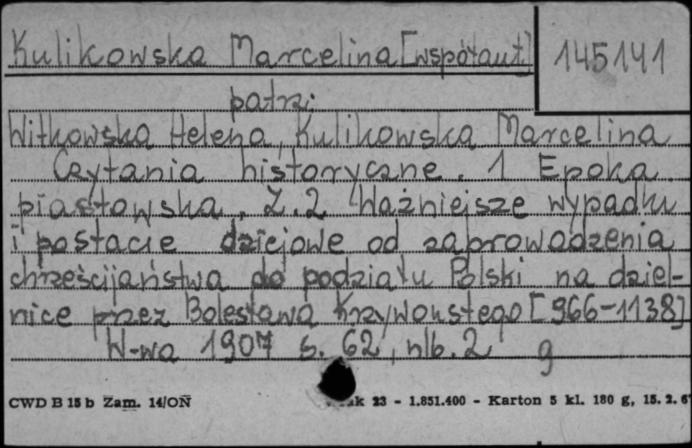 Kulikowska Marcelina [współaut]
145141
patrz:
Witkowska Helena, Kulikowska Marcelina
Czytania historyczne. 1 Epoka
piastowska. Z. 2 Ważniejsze wypadki
i postacie dziejowe od zaprowadzenia
chrześcijaństwa do podziału Polski na dziel-
nice przez Bolesława Krzywoustego [966-1138]
W-wa 1907 s. 62, nlb. 2 g
CWD B 15 b Zam. 14/ON
23 - 1.851.400 - Karton 5 kl. 180 g, 15. 2.